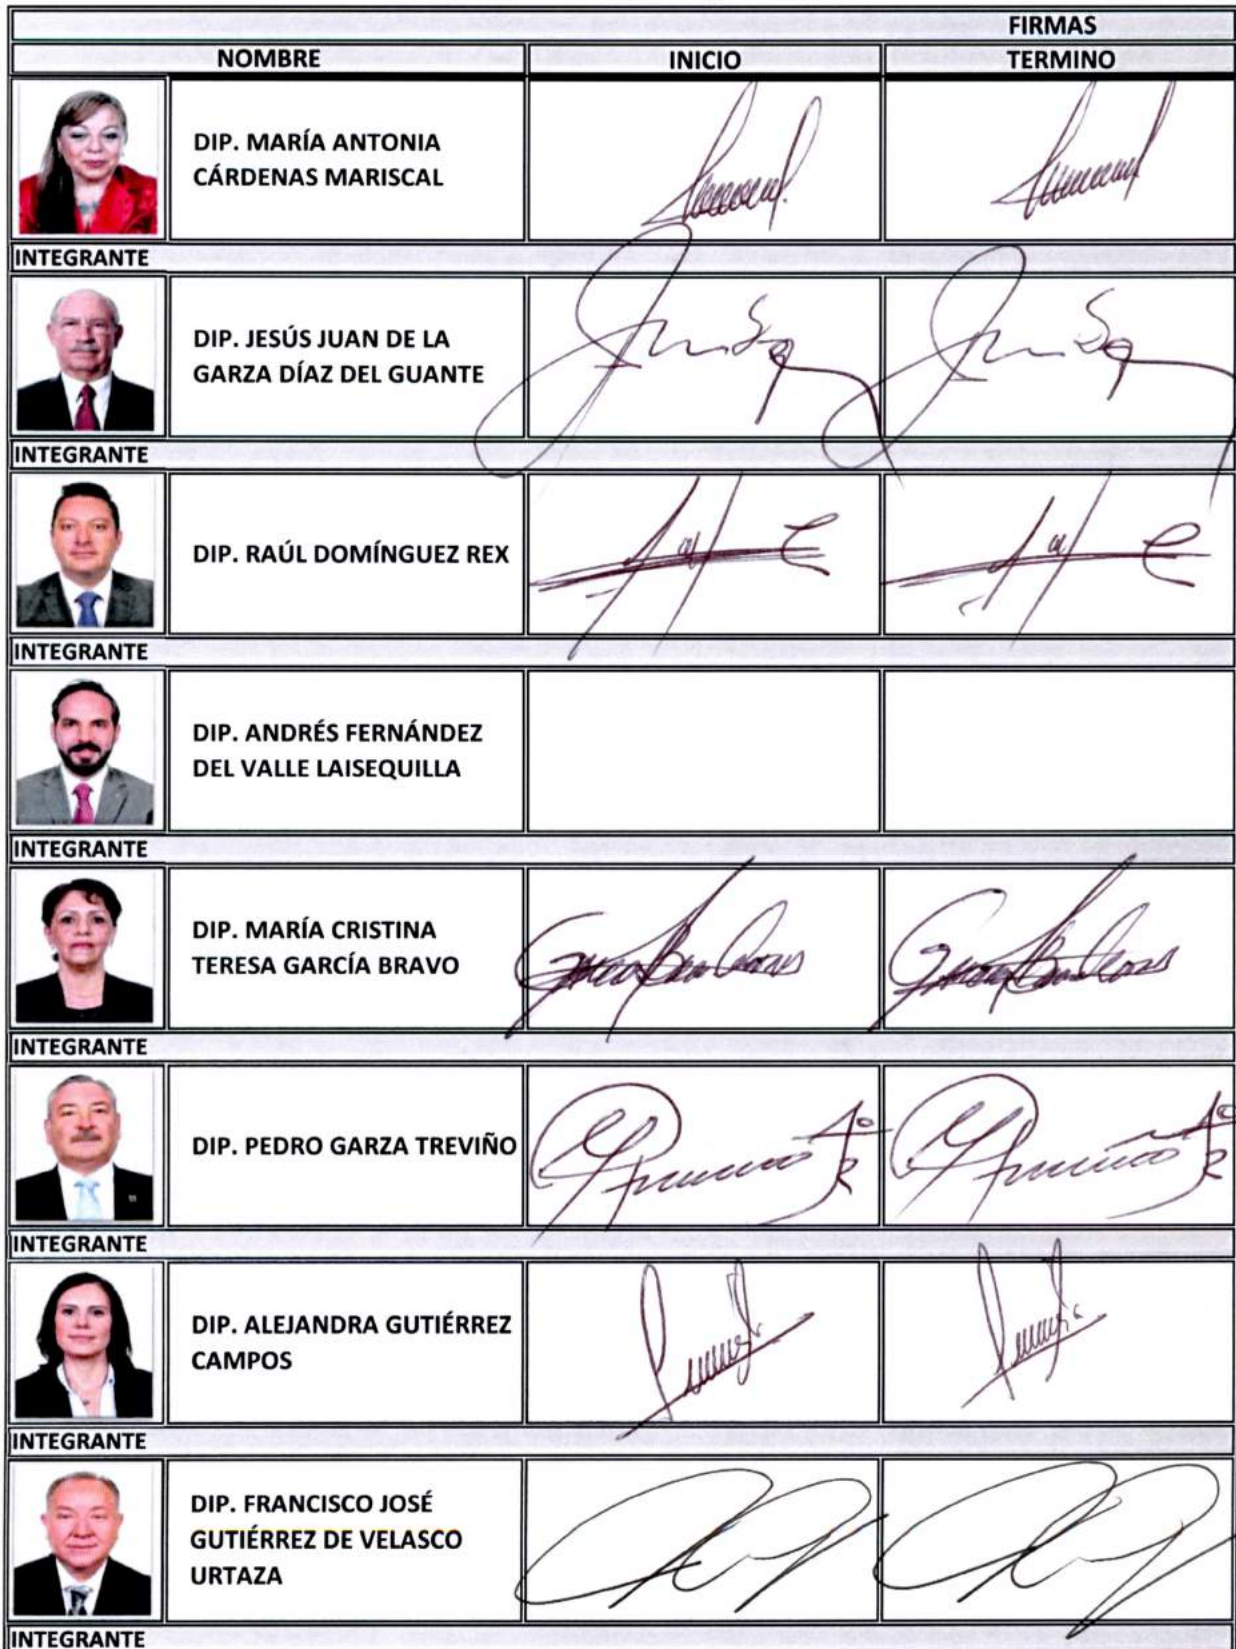 FIRMAS
NOMBRE INICIO TERMINO
DIP. MARÍA ANTONIA
CÁRDENAS MARISCAL
INTEGRANTE
DIP. JESÚS JUAN DE LA
GARZA DÍAZ DEL GUANTE
INTEGRANTE
DIP. RAÚL DOMÍNGUEZ REX
INTEGRANTE
DIP. ANDRÉS FERNÁNDEZ
DEL VALLE LAISEQUILLA
INTEGRANTE
DIP. MARÍA CRISTINA
TERESA GARCÍA BRAVO
INTEGRANTE
DIP. PEDRO GARZA TREVIÑO
INTEGRANTE
DIP. ALEJANDRA GUTIÉRREZ
CAMPOS
INTEGRANTE
DIP. FRANCISCO JOSÉ
GUTIÉRREZ DE VELASCO
URTAZA
INTEGRANTE